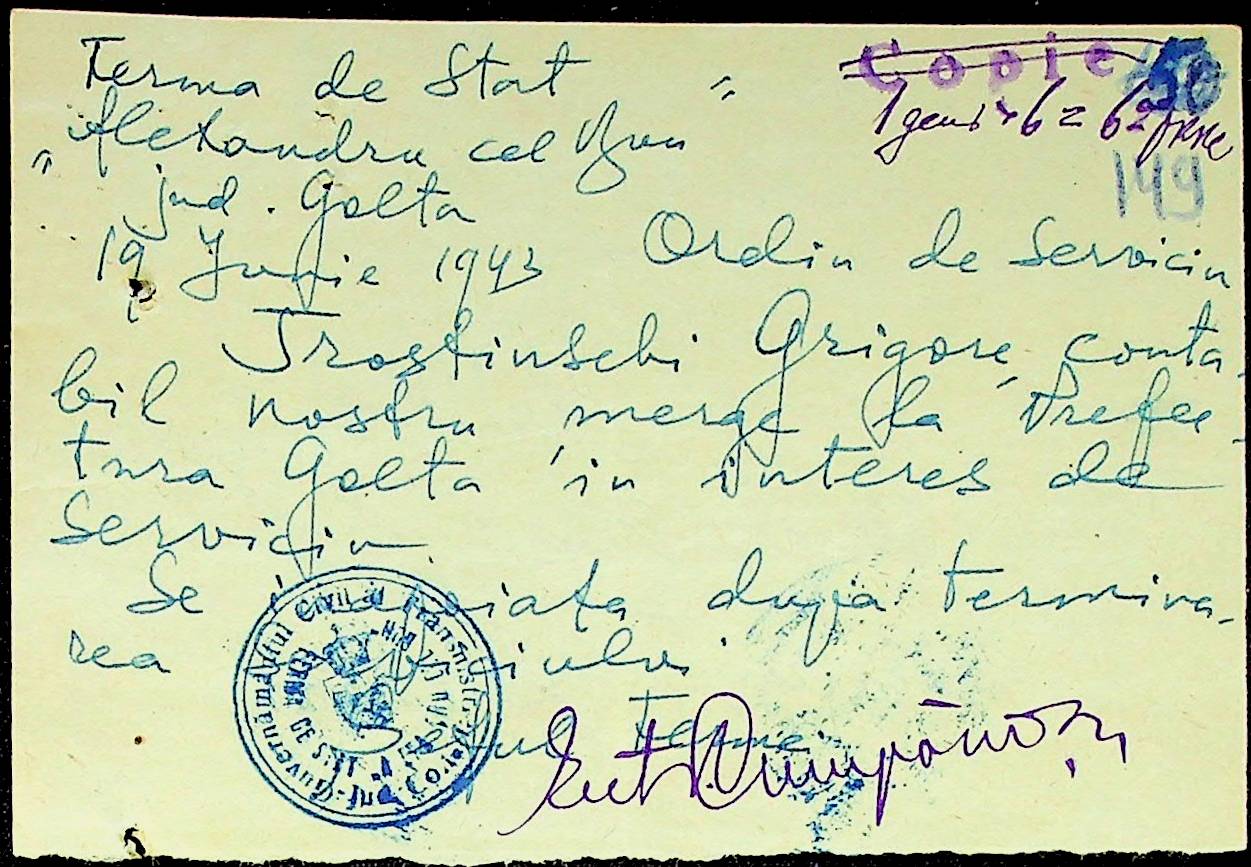 Ferma de Stat "
" Alexandru cel Bun
jud. Golta
19 Iunie 1943
Copie
50
149
Ordin de Serviciu
Trostinschi Grigore, conta-
bil nostru merge la Prefec-
tura Golta in interes de
Serviciu
Se inapoiata dupa termina-
rea serviciului
Ferme
Guvernământul Civil al Transnistriei
FERMA DE STAT